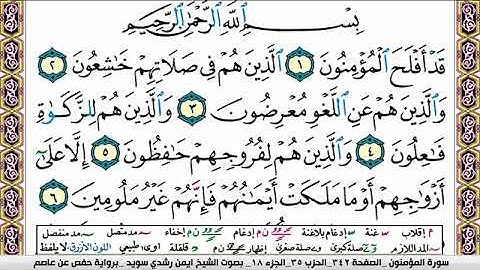 بِسْمِ ٱللَّهِ ٱلرَّحْمَٰنِ ٱلرَّحِيمِ
قَدْ أَفْلَحَ ٱلْمُؤْمِنُونَ ١ ٱلَّذِينَ هُمْ فِى صَلَاتِهِمْ خَٰشِعُونَ ٢
وَٱلَّذِينَ هُمْ عَنِ ٱللَّغْوِ مُعْرِضُونَ ٣ وَٱلَّذِينَ هُمْ لِلزَّكَوٰةِ
فَٰعِلُونَ ٤ وَٱلَّذِينَ هُمْ لِفُرُوجِهِمْ حَٰفِظُونَ ٥ إِلَّا عَلَىٰٓ
أَزْوَٰجِهِمْ أَوْ مَا مَلَكَتْ أَيْمَٰنُهُمْ فَإِنَّهُمْ غَيْرُ مَلُومِينَ ٦
م إقلاب س غنة إدغام بلاغنة ن م إدغام ن م إخفاء مد متصل مد منفصل
مد اللازم صلة كبرى صلة صغرى إظهار ن م قلقلة اوى طبيعي اللون الأزرق لا يلفظ
سورة المؤمنون _ الصفحة ٣٤٢_ الحزب ٣٥_ الجزء ١٨_ بصوت الشيخ ايمن رشدي سويد _ برواية حفص عن عاصم